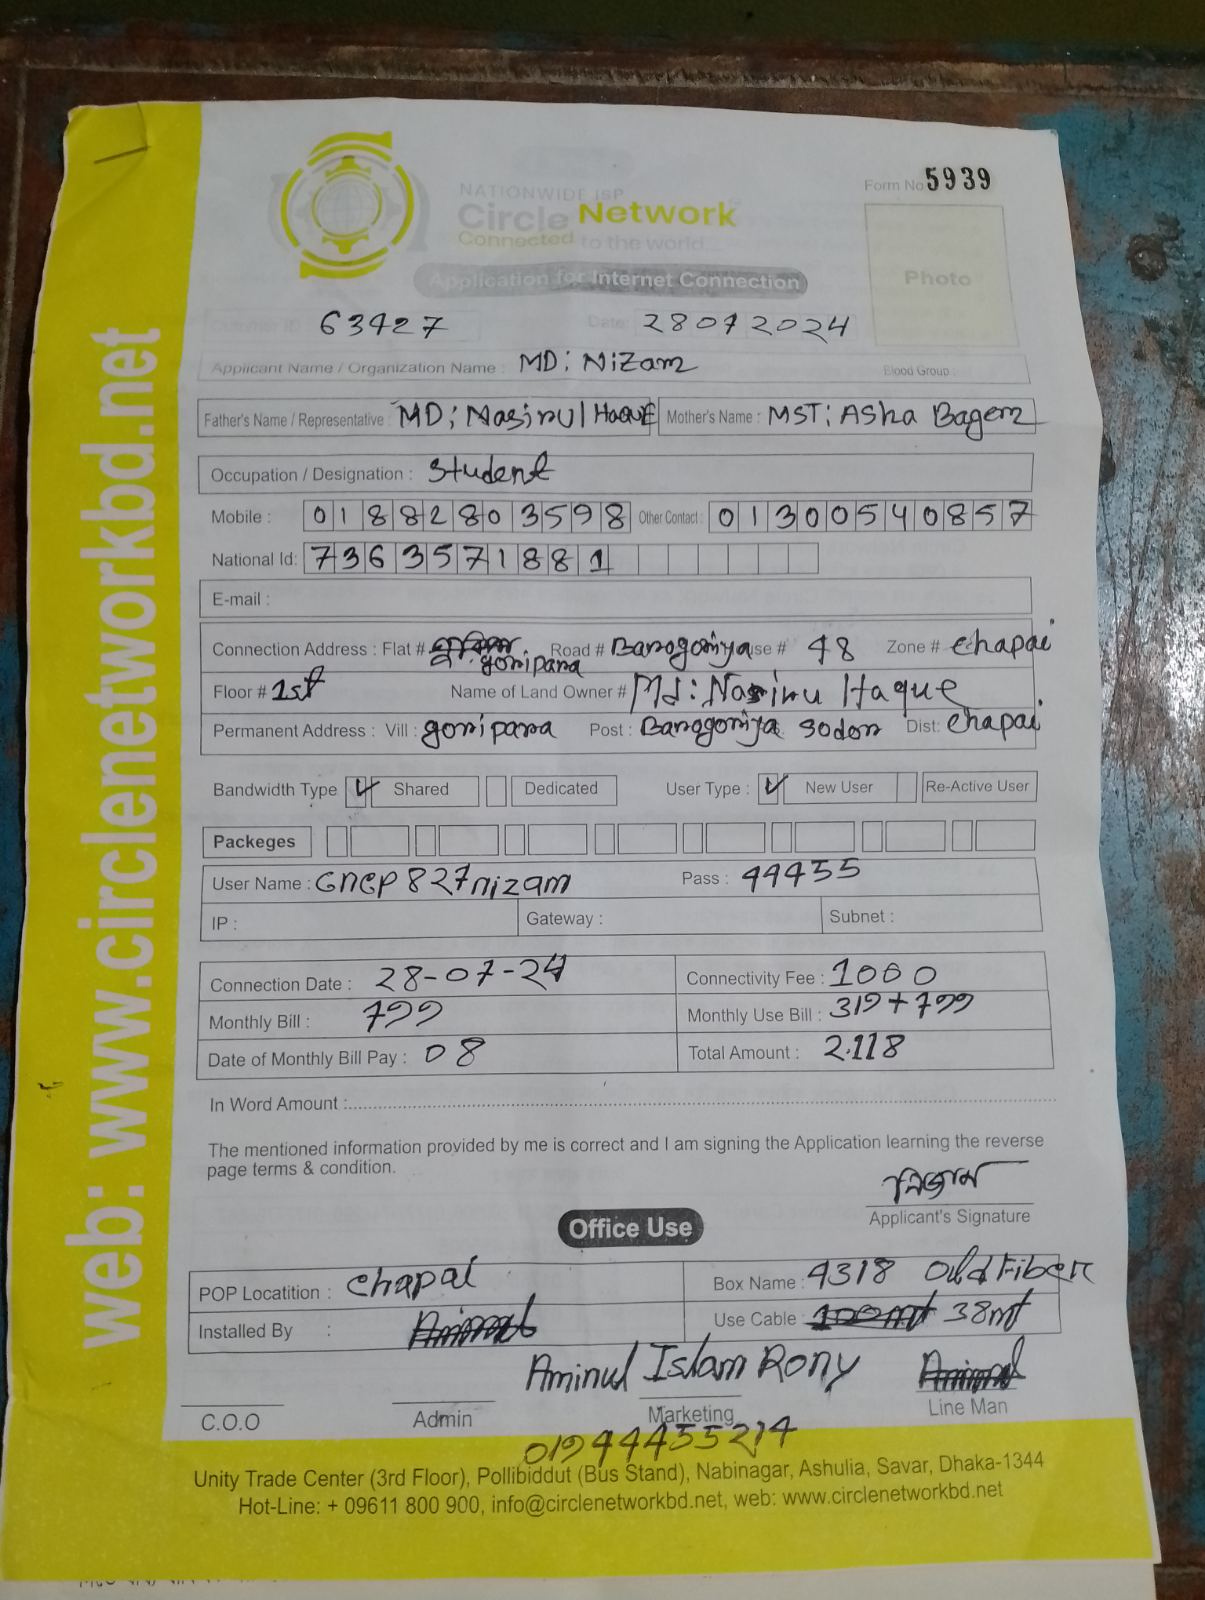 Form No 5939
NATIONWIDE ISP
Circle Network
Connected to the world
Photo
Application for Internet Connection
Customer ID : 63427 Date: 28072024
Applicant Name / Organization Name : MD: Nizam Blood Group :
Father's Name / Representative : MD; Nasirul Haque Mother's Name : MST: Asha Bagem
Occupation / Designation : Student
Mobile : 01882803598 Other Contact : 01300540857
National Id: 7363571881
E-mail :
Connection Address : Flat # Road # Barogoriya se # 48 Zone # chapai
goripara
Floor # 1st Name of Land Owner # Md: Nasiru Haque
Permanent Address : Vill : goripara Post : Barogoriya sodor Dist: chapai
Bandwidth Type ✓ Shared Dedicated User Type : ✓ New User Re-Active User
Packeges
User Name : cncp827nizam Pass : 44455
IP : Gateway : Subnet :
Connection Date : 28-07-24 Connectivity Fee : 1000
Monthly Bill : 799 Monthly Use Bill : 319+799
Date of Monthly Bill Pay : 08 Total Amount : 2.118
In Word Amount :
The mentioned information provided by me is correct and I am signing the Application learning the reverse
page terms & condition.
নিজাম
Applicant's Signature
Office Use
POP Locatition : chapai Box Name : 4318 Old Fiber
Installed By : Use Cable : 38mt
Aminul Islam Rony
C.O.O Admin Marketing Line Man
01944455214
Unity Trade Center (3rd Floor), Pollibiddut (Bus Stand), Nabinagar, Ashulia, Savar, Dhaka-1344
Hot-Line: + 09611 800 900, info@circlenetworkbd.net, web: www.circlenetworkbd.net
web: www.circlenetworkbd.net